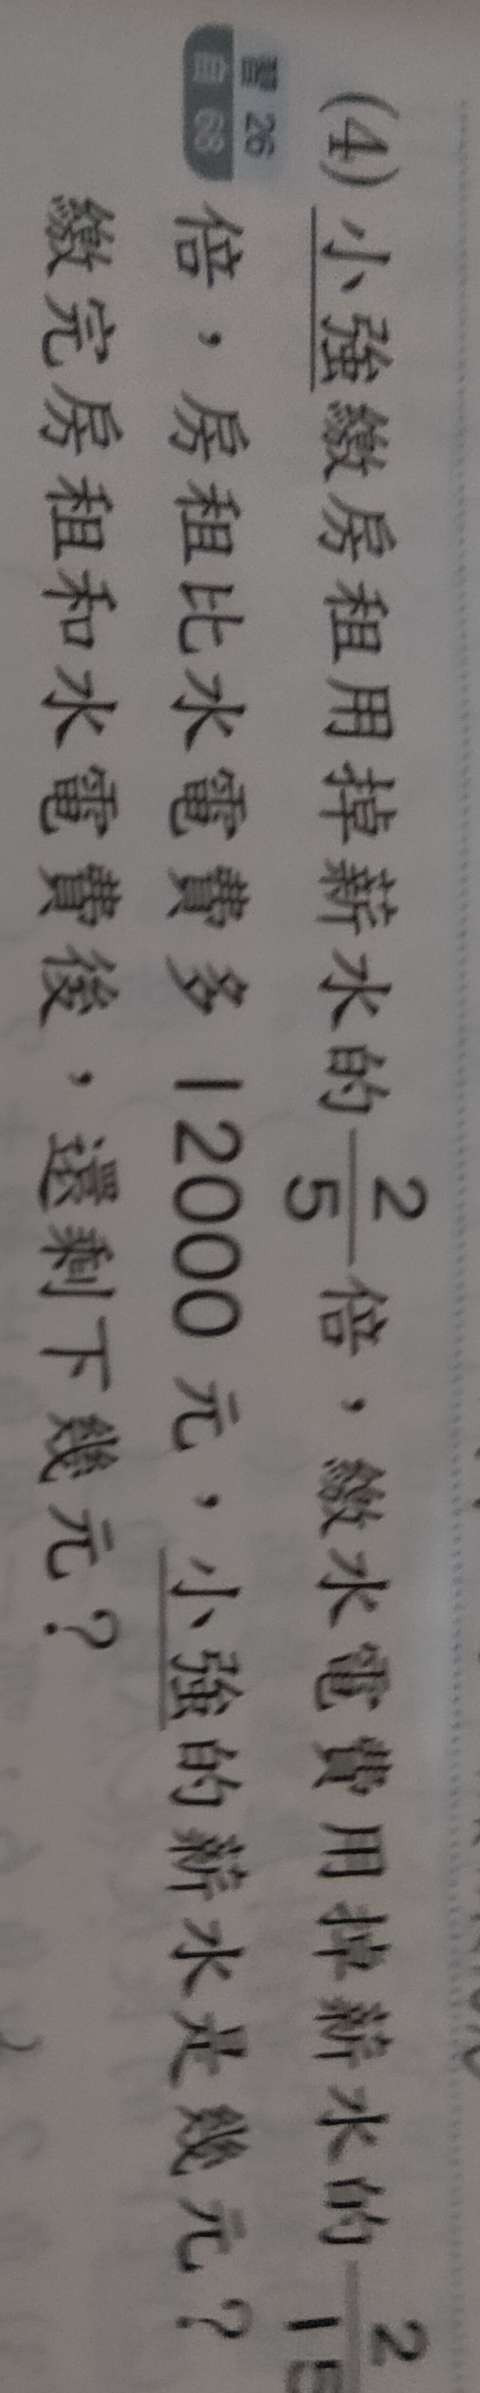 (4) 小強繳房租用掉薪水的 2/5 倍，繳水電費用掉薪水的 2/15
習 26
自 68
倍，房租比水電費多 12000 元，小強的薪水是幾元？
繳完房租和水電費後，還剩下幾元？